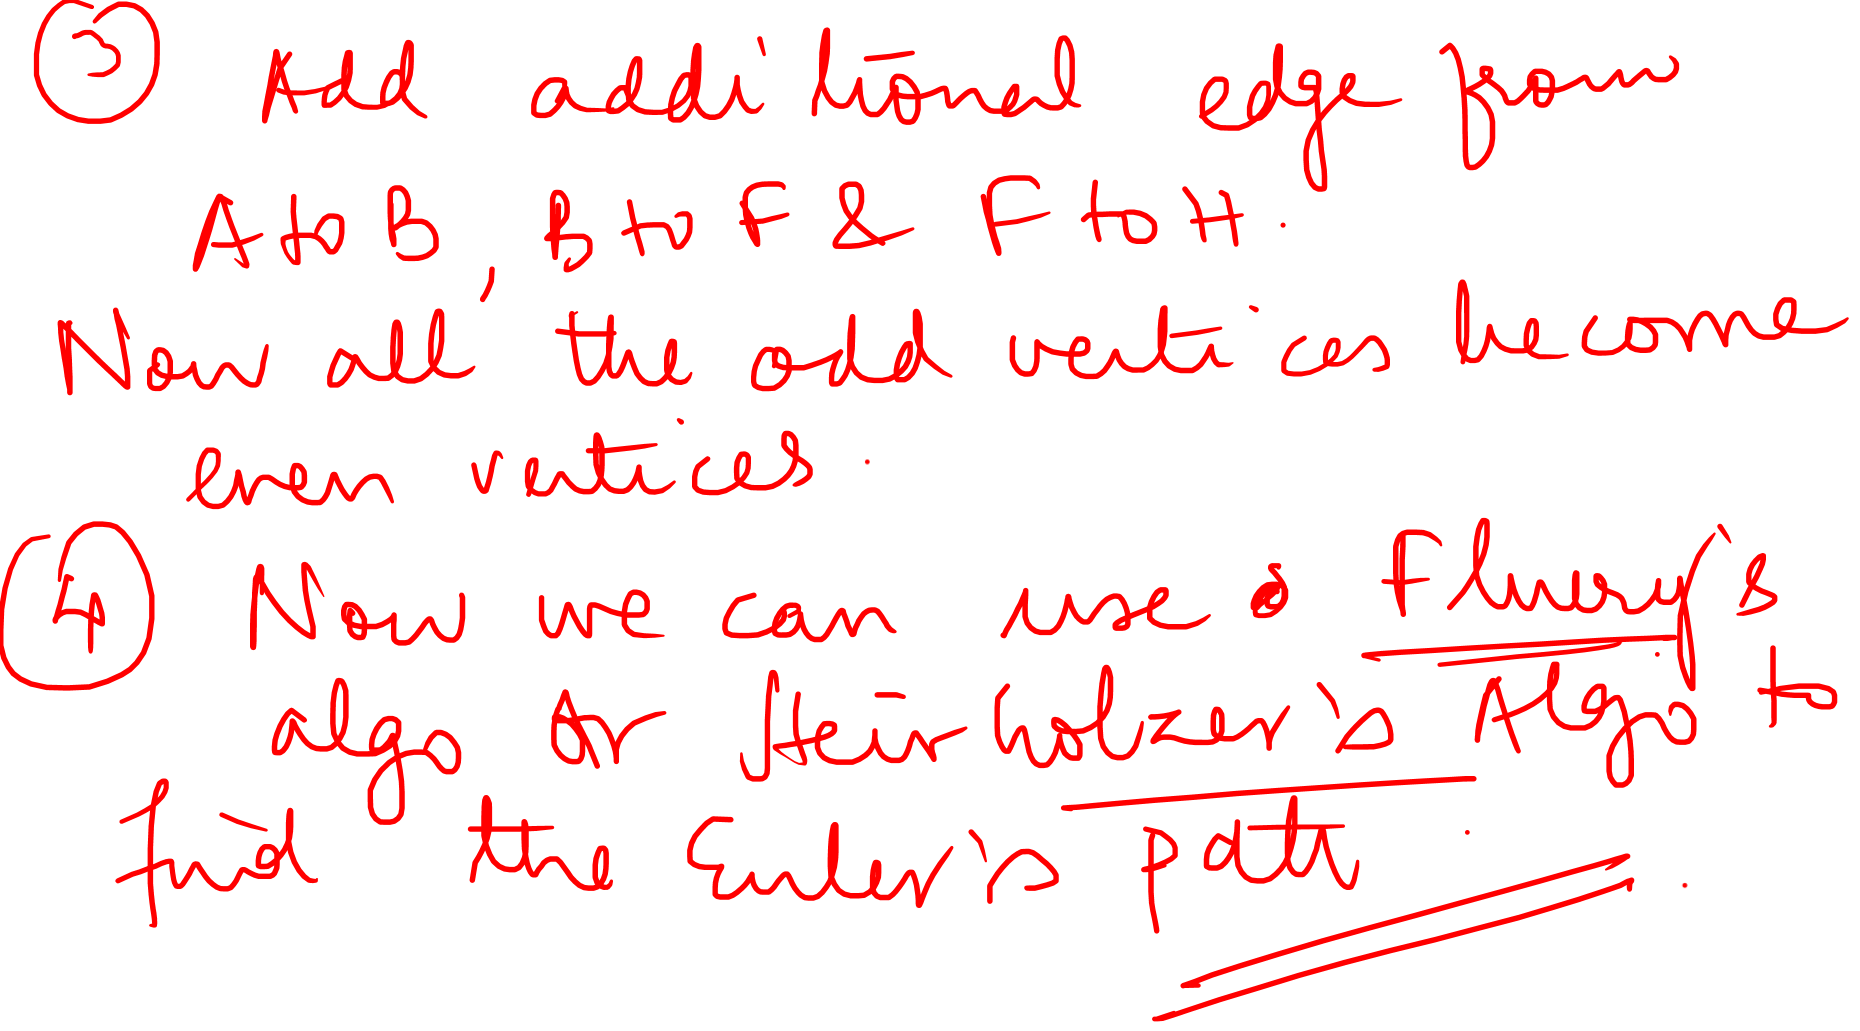 3 Add additional edge from
A to B, B to F & F to H.
Now all the odd vertices become
even vertices.
4 Now we can use Fluery's
algo or Heirholzer's Algo to
find the Euler's path.